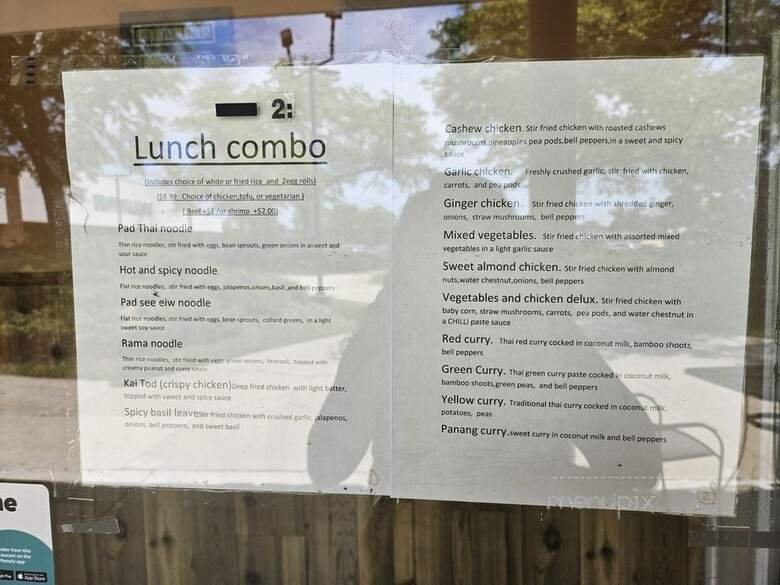 2:
Lunch combo
(includes choice of white or fried rice and 2egg rolls)
($9.99 Choice of chicken,tofu, or vegetarian )
( Beef +$1 /or shrimp +$2.00)
Pad Thai noodle
Thin rice noodles, stir fried with eggs, bean sprouts, green onions in asweet and
sour sauce
Hot and spicy noodle
Flat rice noodles, stir fried with eggs, jalapenos,onions,basil ,and bell peppers
Pad see eiw noodle
Flat rice noodles, stir fried with eggs, bean sprouts, collard greens, in a light
sweet soy sauce
Rama noodle
Thin rice noodles, stir fried with eggs, green onions, broccoli, topped with
creamy peanut and curry sauce
Kai Tod (crispy chicken)Deep fried chicken with light batter,
topped with sweet and spicy sauce
Spicy basil leavesStir fried chicken with crushed garlic, jalapenos,
onions, bell peppers, and sweet basil
Cashew chicken. Stir fried chicken with roasted cashews
mushrooms,pineapples pea pods,bell peppers,in a sweet and spicy
sauce
Garlic chicken. Freshly crushed garlic, stir fried with chicken,
carrots, and pea pods
Ginger chicken. Stir fried chicken with shredded ginger,
onions, straw mushrooms, bell peppers
Mixed vegetables. Stir fried chicken with assorted mixed
vegetables in a light garlic sauce
Sweet almond chicken. Stir fried chicken with almond
nuts,water chestnut,onions, bell peppers
Vegetables and chicken delux. Stir fried chicken with
baby corn, straw mushrooms, carrots, pea pods, and water chestnut in
a CHILLI paste sauce
Red curry. Thai red curry cocked in coconut milk, bamboo shoots,
bell peppers
Green Curry. Thai green curry paste cocked in coconut milk,
bamboo shoots,green peas, and bell peppers
Yellow curry. Traditional thai curry cocked in coconut milk,
potatoes, peas
Panang curry.sweet curry in coconut milk and bell peppers
2
menupix
order from this
restaurant on the
Menufy app
App Store